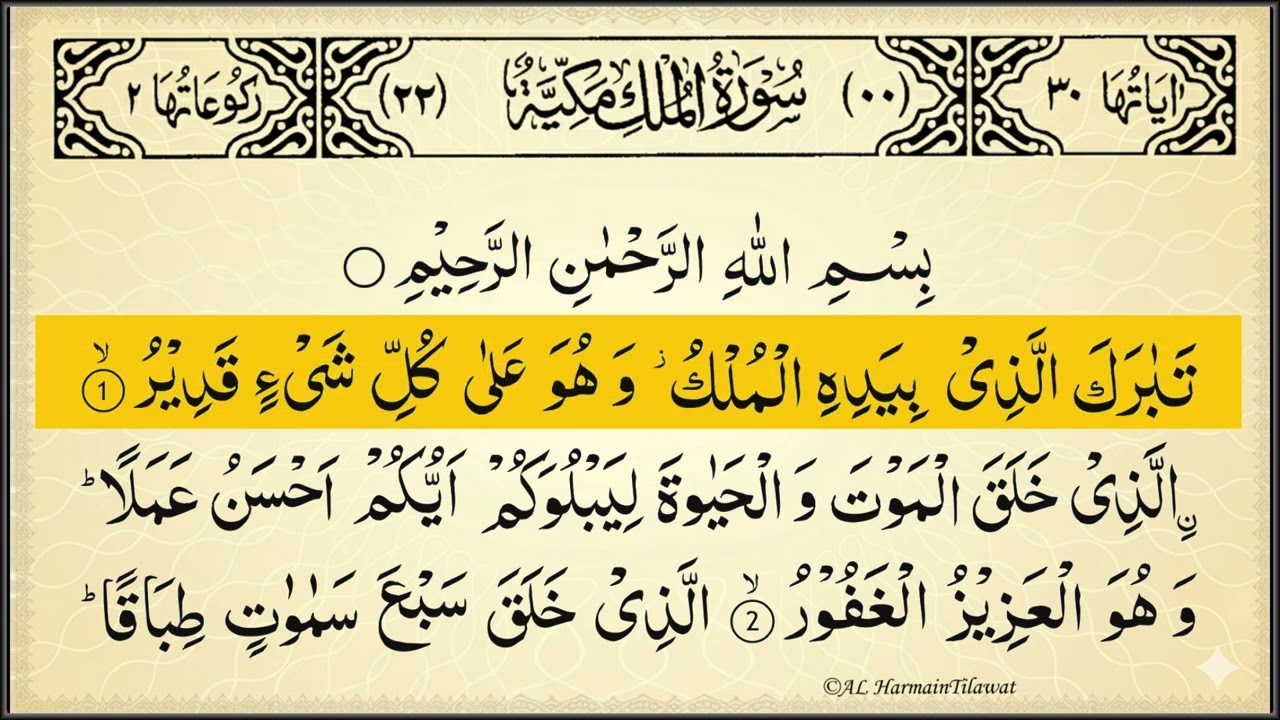 اٰيَاتُهَا ٣٠ (٠٠) سُوْرَةُ الْمُلْكِ مَكِّيَّةٌ (٢٢) رَكُوْعَاتُهَا ٢
بِسْمِ اللّٰهِ الرَّحْمٰنِ الرَّحِيْمِ ○
تَبٰرَكَ الَّذِىْ بِيَدِهِ الْمُلْكُ ز وَ هُوَ عَلٰى كُلِّ شَىْءٍ قَدِيْرُ ۙ ①
نِ الَّذِىْ خَلَقَ الْمَوْتَ وَ الْحَيٰوةَ لِيَبْلُوَكُمْ اَيُّكُمْ اَحْسَنُ عَمَلًا ؕ
وَ هُوَ الْعَزِيْزُ الْغَفُوْرُ ۙ ② الَّذِىْ خَلَقَ سَبْعَ سَمٰوٰتٍ طِبَاقًا ؕ
©AL HarmainTilawat